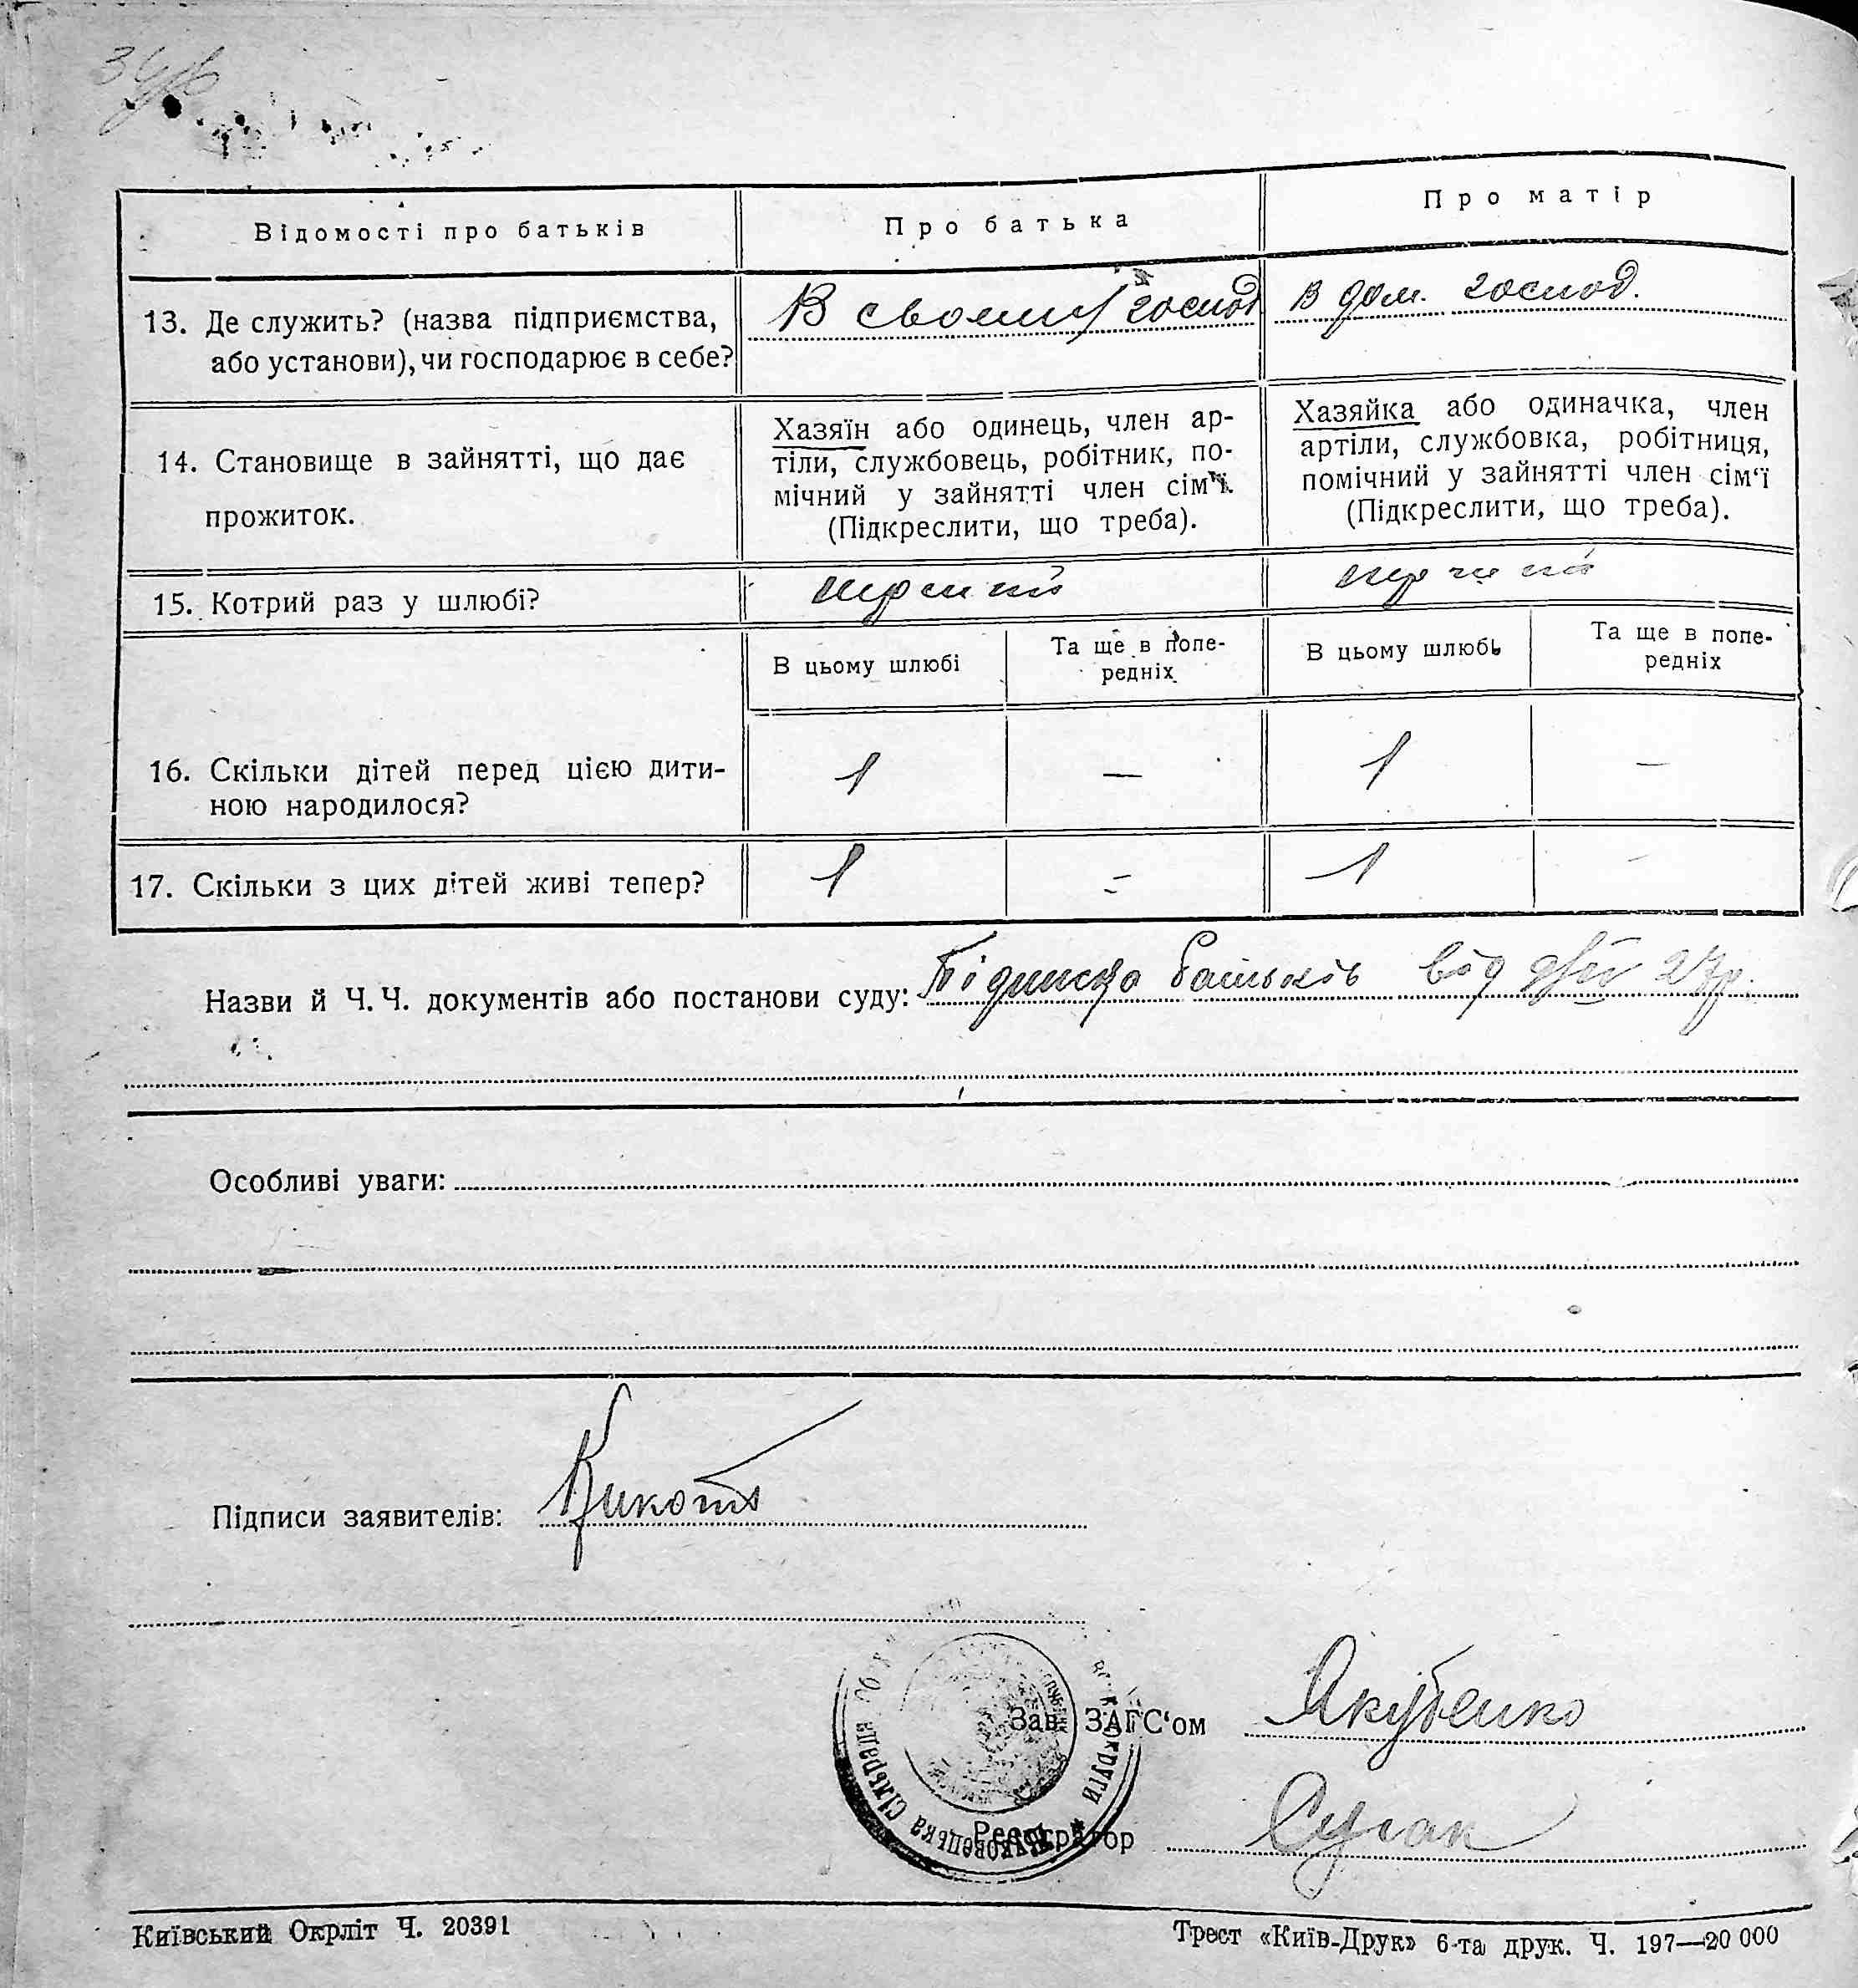 Відомості про батьків
Про батька
Про матір
13. Де служить? (назва підприємства, або установи), чи господарює в себе?
В своему господ
В дом. господ.
14. Становище в зайнятті, що дає прожиток.
Хазяїн або одинець, член ар-
тіли, службовець, робітник, по-
мічний у зайнятті член сім'ї.
(Підкреслити, що треба).
Хазяйка або одиначка, член
артіли, службовка, робітниця,
помічний у зайнятті член сім‘ї
(Підкреслити, що треба).
15. Котрий раз у шлюбі?
перший
перший
В цьому шлюбі
Та ще в попе-
редніх
В цьому шлюбі
Та ще в попе-
редніх
16. Скільки дітей перед цією дити-
ною народилося?
1 — 1 —
17. Скільки з цих дітей живі тепер?
1 — 1 —
Назви й Ч. Ч. документів або постанови суду: Підписка батьків від 27р.
Особливі уваги:
Підписи заявителів: Кикоть
Зав. ЗАГС‘ом Якубенко
Реєстратор Сугак
сільрада
округи
Київський Окрліт Ч. 20391
Трест «Київ-Друк» 6-та друк. Ч. 197—20 000